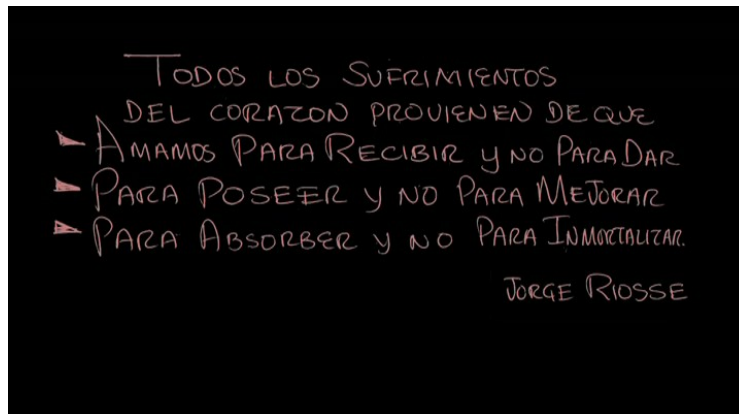 TODOS LOS SUFRIMIENTOS
DEL CORAZON PROVIENEN DE QUE
AMAMOS PARA RECIBIR Y NO PARA DAR
PARA POSEER Y NO PARA MEJORAR
PARA ABSORBER Y NO PARA INMORTALIZAR.
JORGE RIOSSE